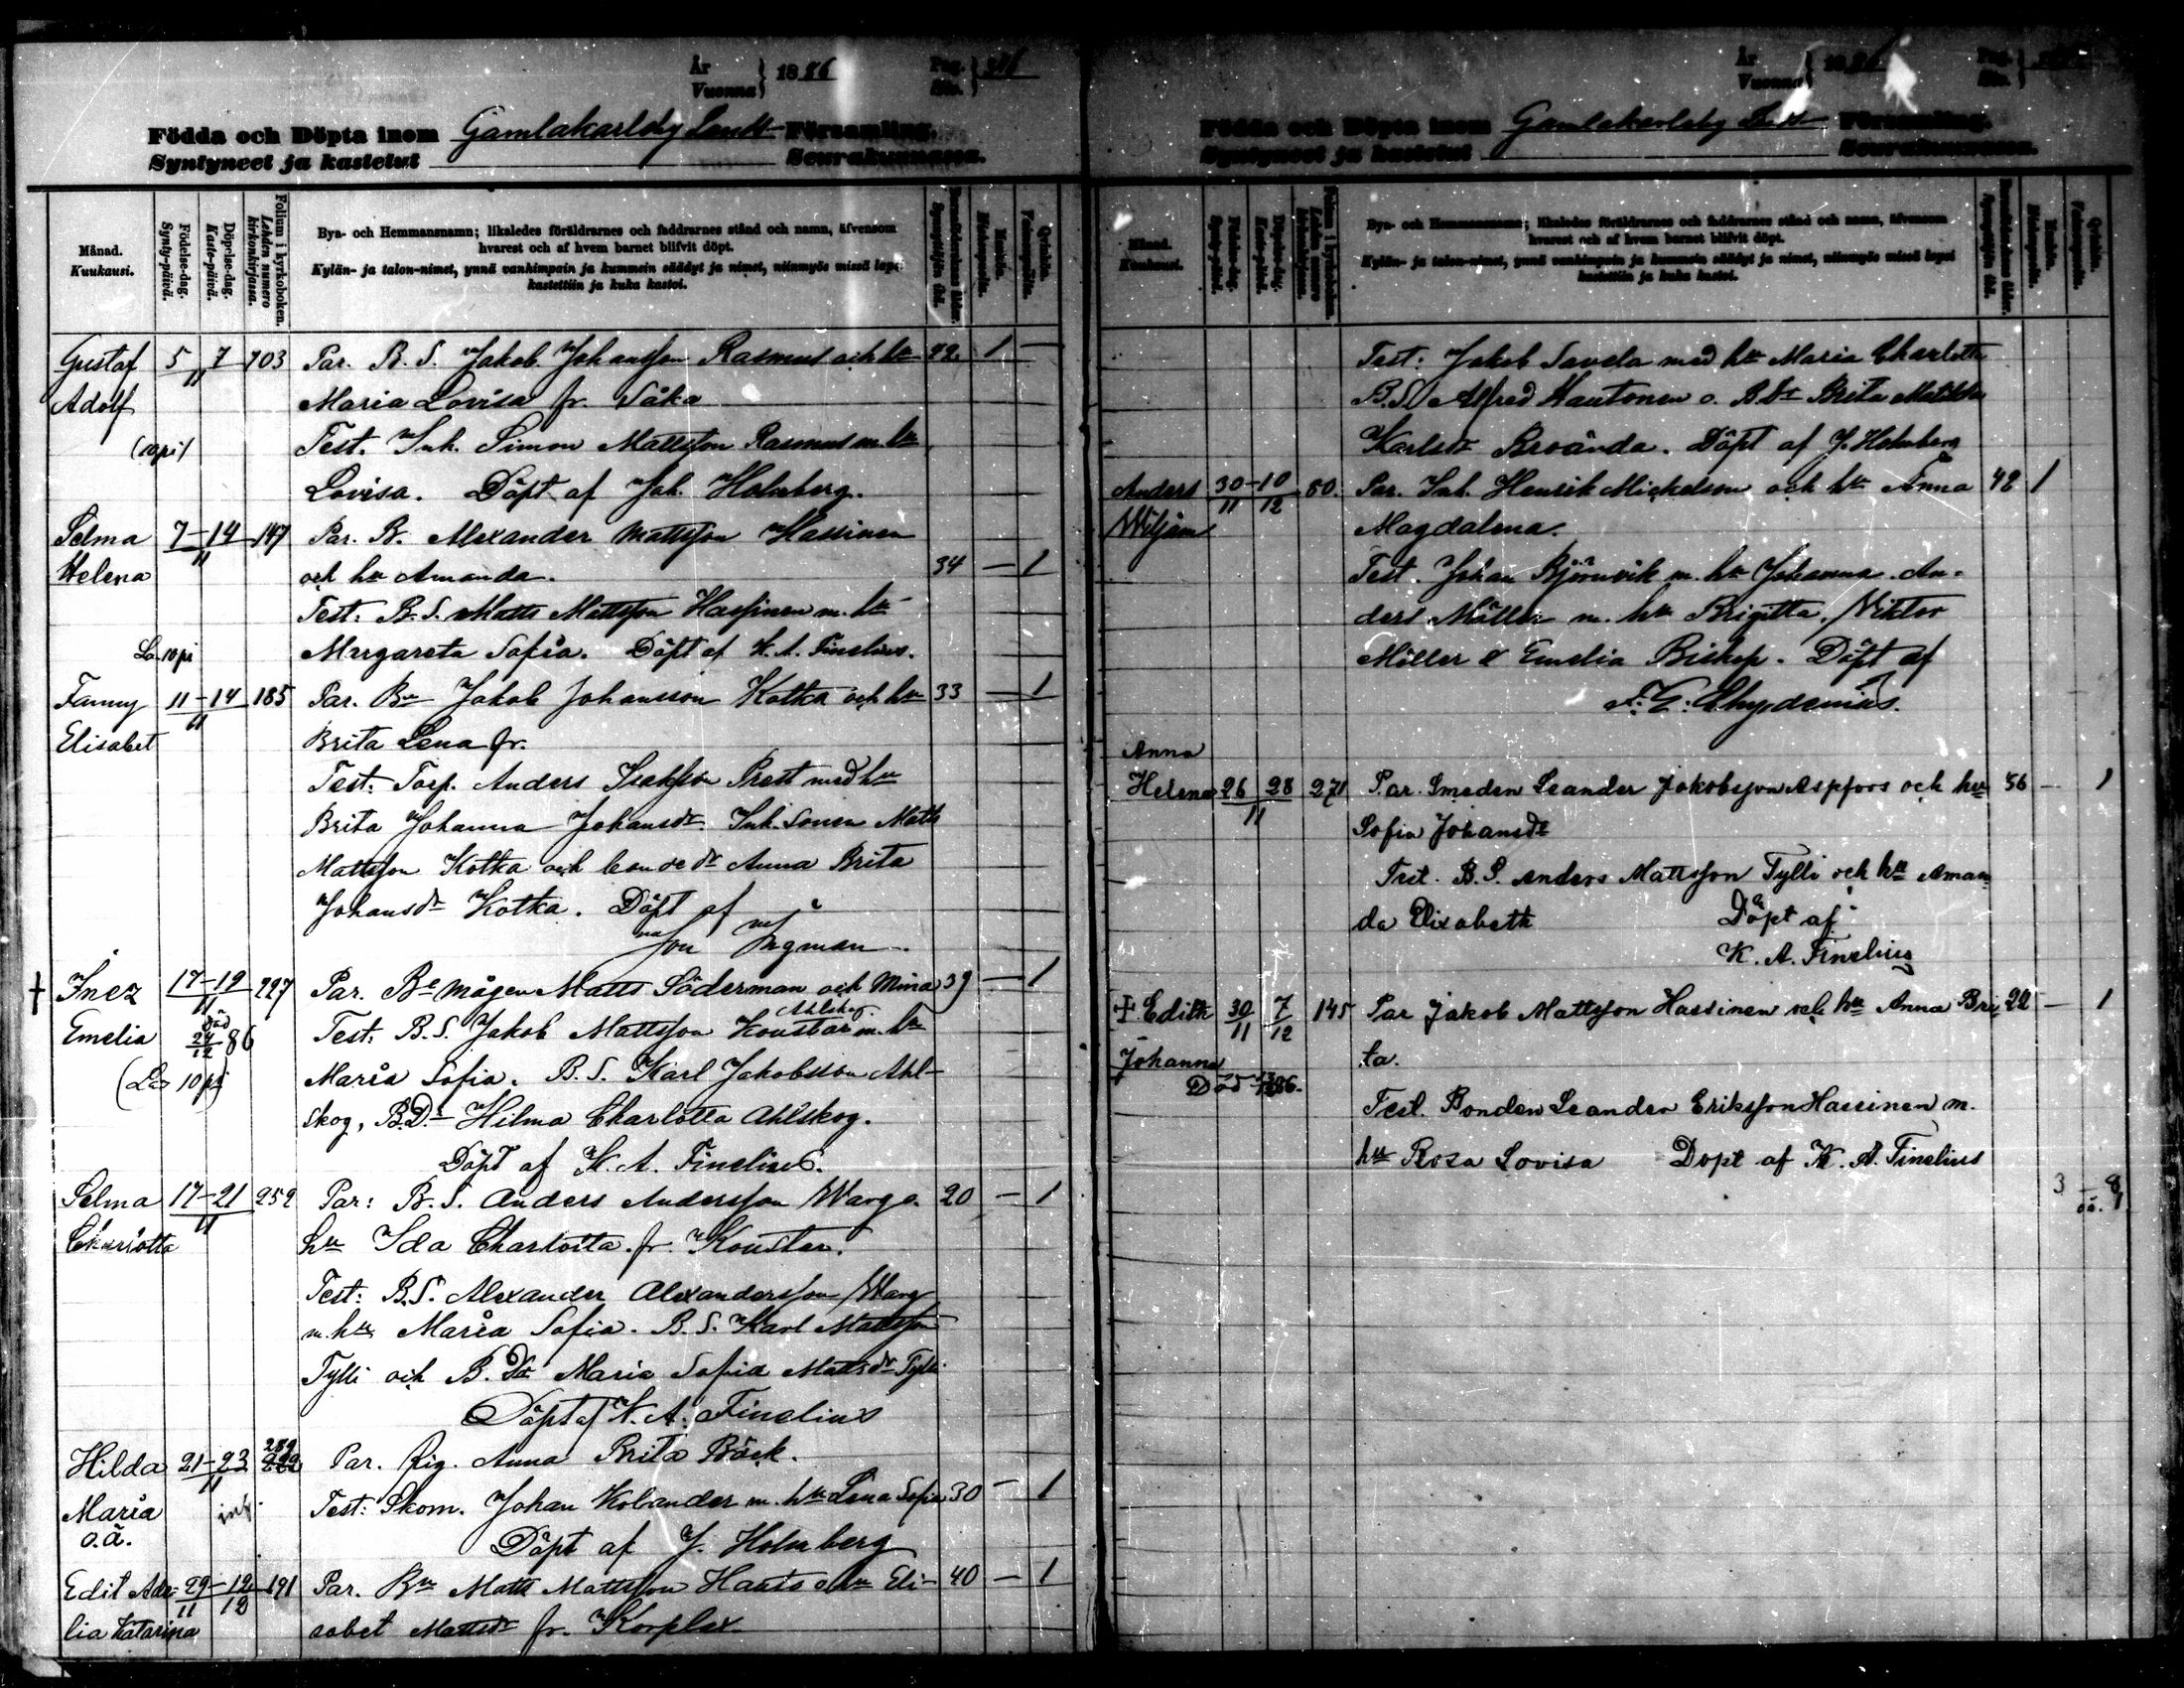 År
Vuonna } 1886 Pag.
Siv. }
Födda och Döpta inom Gamlakarleby Landt Församling.
Syntyneet ja kastetut Seurakunnassa.
Månad.
Kuukausi.
Födelse-dag.
Synty-päivä.
Döpelse-dag.
Kaste-päivä.
Folium i kyrkoboken.
Lehden numero kirkonkirjassa.
Bya- och Hemmansnamn; likaledes föräldrarnes och faddrarnes stånd och namn, äfvensom
hvarest och af hvem barnet blifvit döpt.
Kylän- ja talon-nimet, ynnä vanhimpain ja kummein säädyt ja nimet, niinmyös missä lapsi
kastettiin ja kuka kastoi.
Barnaföderskans ålder.
Synnyttäjän ikä.
Mankön.
Miehenpuolia.
Qvinkön.
Vaimonpuolia.
Gustaf 5 7 103 Par. B. S. Jakob Johansson Rasmus och hu 22 1 —
11
Adolf Maria Lovisa fr. Såka
(10 pi) Test. Inh. Simon Mattsson Rasmus m. hu
Lovisa. Döpt af Joh. Holmberg.
Selma 7-14 147 Par. B. Alexander Mattsson Hassinen
11
Helena och hu Amanda. 34 — 1
Test: B. S. Matts Mattsson Hassinen m. hu
La 10 pi Margareta Sofia. Döpt af K. A. Finelius.
Fanny 11-14 185 Par. Bn Jakob Johansson Kotka och hu 33 — 1
11
Elisabet Brita Lena fr.
Test: Torp. Anders Isaksson Prest med hu
Brita Johanna Johansdr. Inh. Sonen Matts
Mattsson Kotka och bondedr Anna Brita
Johansdr Kotka. Döpt af
Jon Ingman.
† Inez 17-19 227 Par. Be mågen Matts Söderman och Mina 39 — 1
11 Ahlskog.
Emelia Död 24/12 86 Test: B. S. Jakob Mattsson Konstar m. hu
(La 10 pi) Maria Sofia. B. S. Karl Jakobsson Ahl-
skog, B.Dr Hilma Charlotta Ahlskog.
Döpt af K. A. Finelius.
Selma 17-21 252 Par: B. S. Anders Andersson Warg o. 20 — 1
11
Charlotta hu Ida Charlotta fr. Konstar.
Test: B. S. Alexander Alexandersson Warg
m. hu Maria Sofia. B. S. Karl Mattsson
Tylli och B. Dr Maria Sofia Mattsdr Tylli
Döpt af K. A. Finelius
Hilda 21-23 Par. Pig. Anna Brita Böck.
11
Maria inf. Test: Skom. Johan Kolander m. hu Lena Sofia 30 — 1
o.ä. Döpt af J. Holmberg
Edit Ade- 29-12 191 Par. Bn Matts Mattsson Hauts o hu Eli- 40 — 1
11 12
lia Katarina sabet Mattsdr fr. Korplax
År
Vuonna } 1886 Pag.
Siv. }
Födda och Döpta inom Gamlakarleby Landt Församling.
Syntyneet ja kastetut Seurakunnassa.
Månad.
Kuukausi.
Födelse-dag.
Synty-päivä.
Döpelse-dag.
Kaste-päivä.
Folium i kyrkoboken.
Lehden numero kirkonkirjassa.
Bya- och Hemmansnamn; likaledes föräldrarnes och faddrarnes stånd och namn, äfvensom
hvarest och af hvem barnet blifvit döpt.
Kylän- ja talon-nimet, ynnä vanhimpain ja kummein säädyt ja nimet, niinmyös missä lapsi
kastettiin ja kuka kastoi.
Barnaföderskans ålder.
Synnyttäjän ikä.
Mankön.
Miehenpuolia.
Qvinkön.
Vaimonpuolia.
Test: Jakob Savela med hu Maria Charlotta
B. S. Alfred Hautonen o. B. Dr Brita Matilda
Karlsdr Broända. Döpt af J. Holmberg
Anders 30-10 80. Par. Inh. Henrik Mickelson och hu Anna 42 1
11 12
Wiljam Magdalena.
Test. Johan Björnvik m. hu Johanna. An-
ders Möller m. hu Brigitta, Viktor
Möller & Emelia Biskop. Döpt af
F. E. Chydenius.
Anna
Helena 26 28 271 Par. Smeden Leander Jakobsson Aspfors och hu 36 — 1
11
Sofia Johansdr
Test. B. S. Anders Mattsson Tylli och hu Aman
da Elisabeth Döpt af
K. A. Finelius
† Edith 30 7 145 Par Jakob Mattsson Hassinen och hu Anna Bri 22 — 1
11 12
Johanna ta.
Död 86.
Test. Bonden Leander Eriksson Hassinen m.
hu Rosa Lovisa Döpt af K. A. Finelius
3 — 8
oä. 1